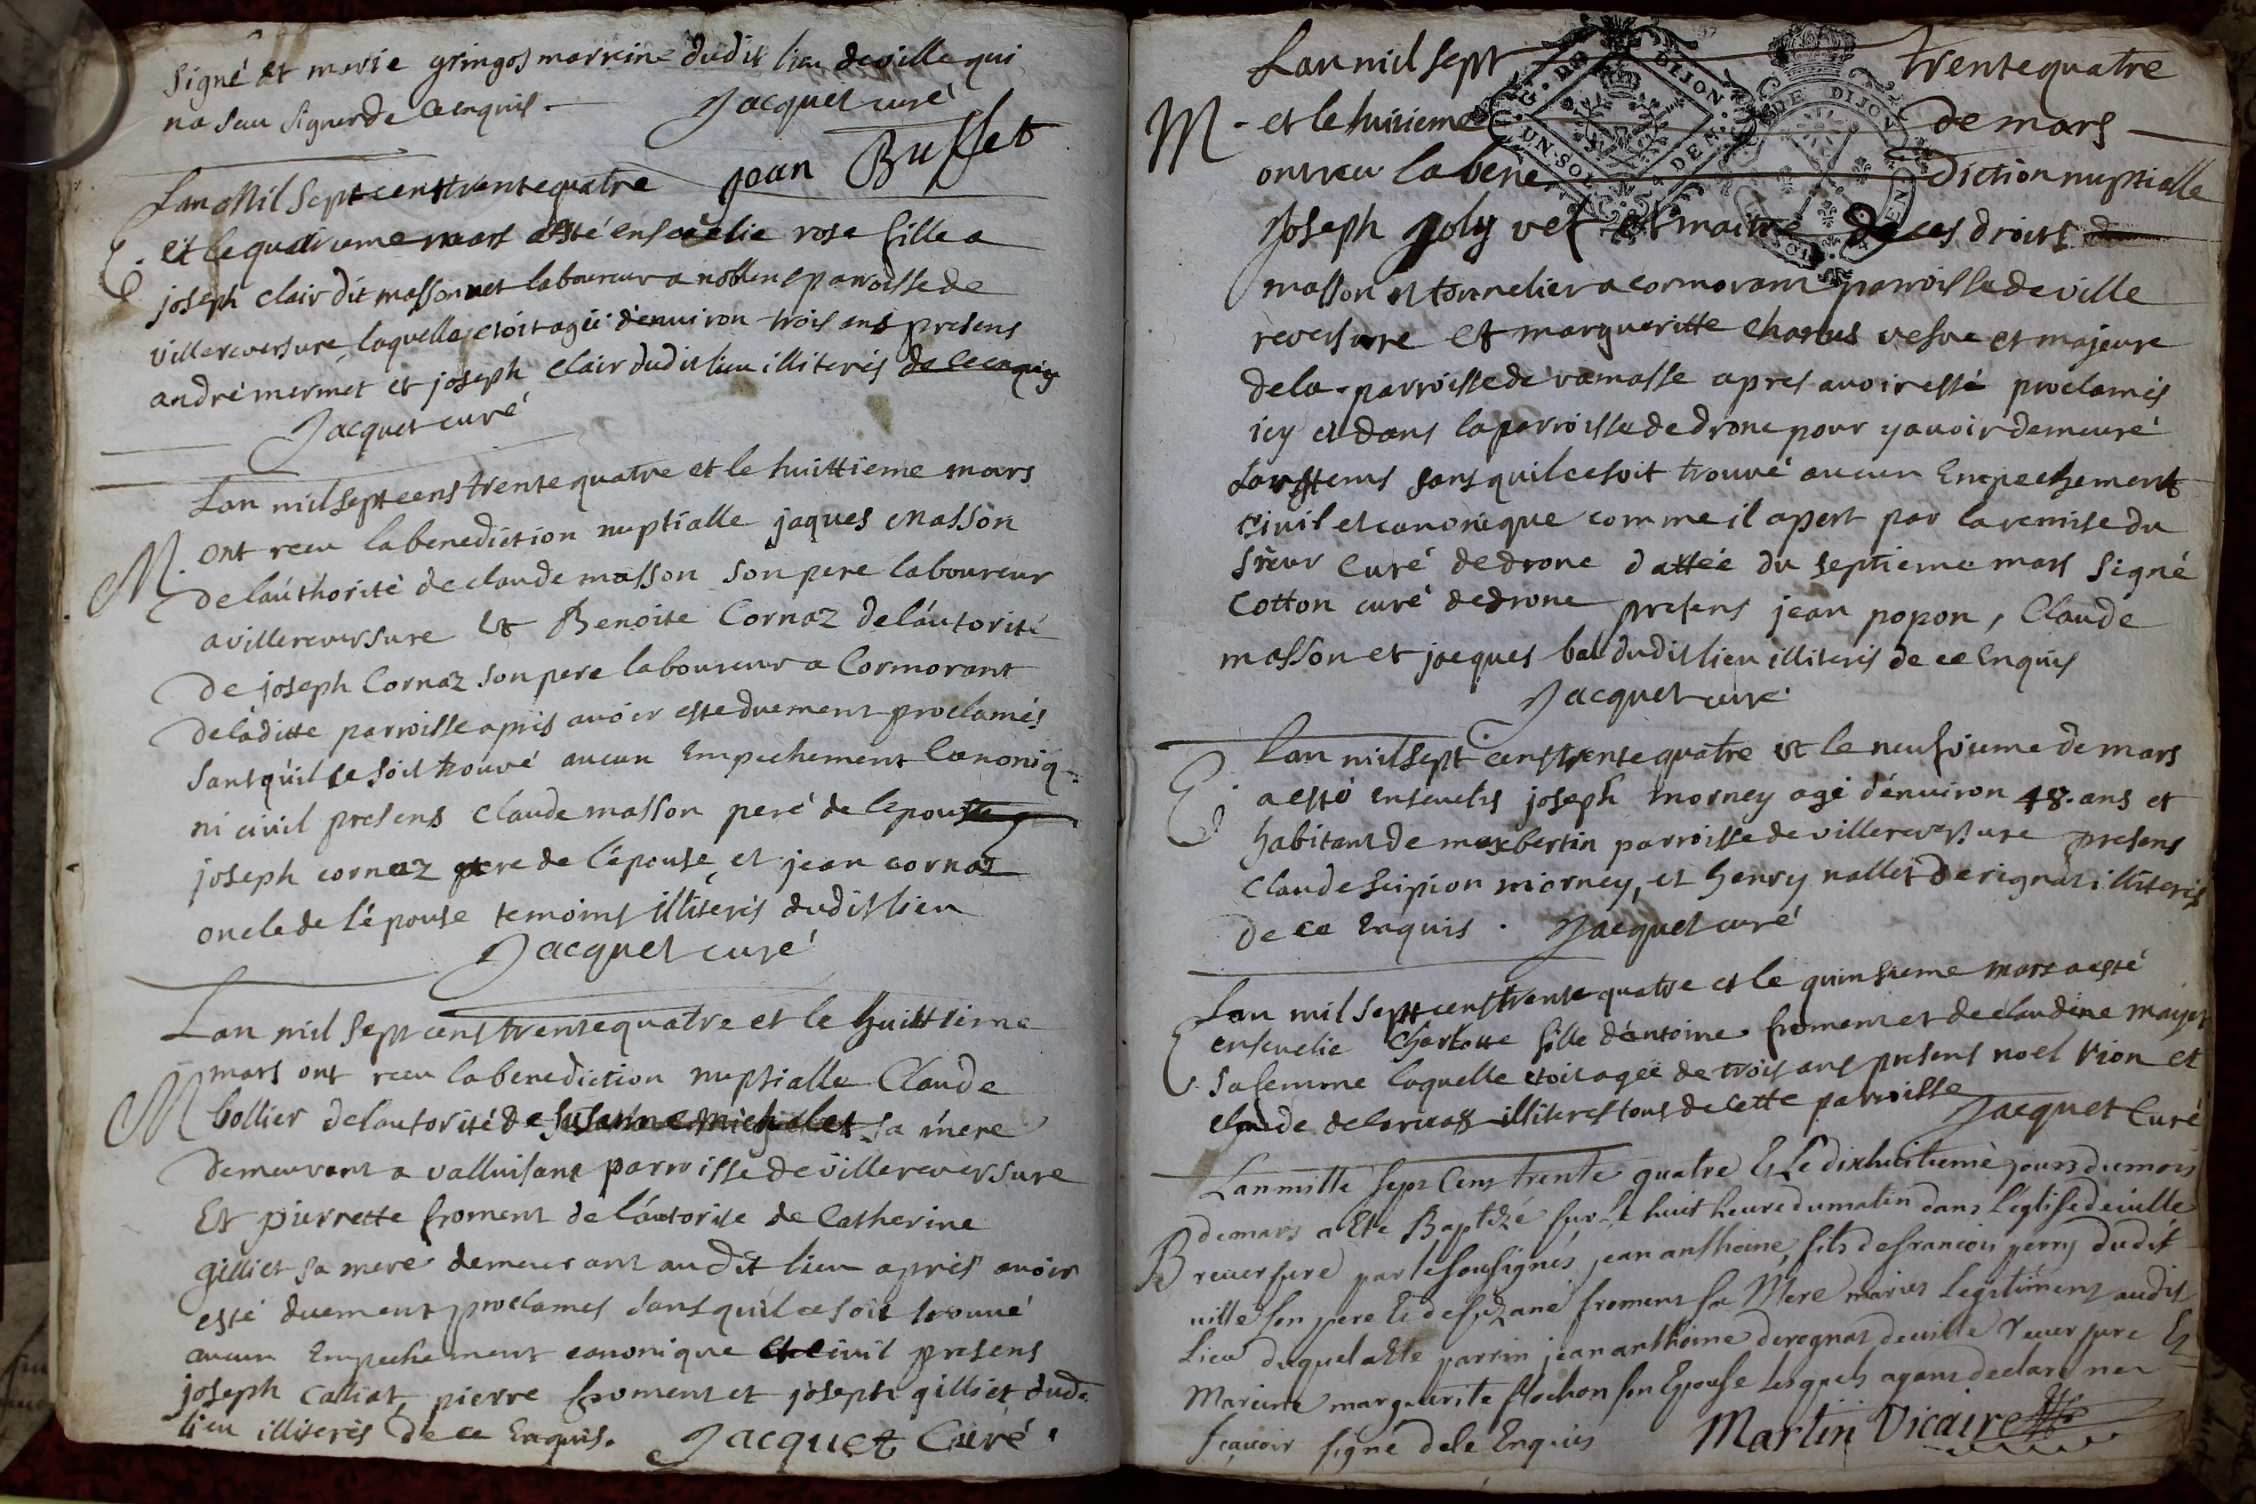 signé et marie gringos marraine dudit lieu de ville qui
na seu signer de ce enquis.
Jacquet curé
jean Buffet
Lan Mil sept cens trente quatre
E. et le quatrieme mars a esté ensevelie rose fille a
joseph clair dit massonnet laboureur a noblens parroisse de
villereversure, laquelle etoit agéé d'environ trois ans presens
andré mermet et joseph clair dudit lieu illiterés de ce enquis
Jacquet curé
Lan mil sept cens trente quatre et le huittieme mars
M. ont receu la benediction nuptialle jaques masson
de l'authorité de claude masson son pere laboureur
a villereversure et Benoite Cornaz de l'autorité
de joseph Cornaz son pere laboureur a Cormorant
de laditte parroisse apres avoir esté duement proclamés
sans qu'il se soit trouvé aucun Empechement Canoniq
ni civil presens Claude masson peré de lepouse
joseph cornaz pere de l'épouse, et jean cornaz
oncle de l'épouse temoins illiterés dudit lieu
Jacquet curé
Lan mil sept cens trente quatre et le huittieme
M mars ont receu la benediction nuptialle Claude
bollier de lautorité de susanne michalet sa mere
demeurant a valluisant parroisse de villereversure
Et pierrette froment de l'autorité de Catherine
gilliet sa mere demeurant audit lieu aprés avoir
esté duement proclames sans quil ce soit trouvé
aucun Empechement canonique et civil presens
joseph Calliat, pierre froment et joseph gilliet dud.
lieu illiterés de ce Enquis. Jacquet Curé.
Lan mil sept trente quatre
DE DIJON
UN SOL
DE DIJON
M - et le huitieme de mars
ont receu la bene diction nuptialle
Joseph Joly vef et maitre de ces droits
masson et tonnelier a cormorant parroisse de ville
reversure et margueritte Charlus vesve et majeure
de la parroisse de ramasse apres avoir esté proclamés
icy et dans la parroisse de drone pour y avoir demeuré
sans quil ce soit trouvé aucun Empechement
Civil et canonique comme il apert par la remise du
sieur Curé de drone dattée du septieme mars signé
Cotton curé de drone presens jean popon, Claude
masson et jacques bal dudit lieu illiterés de ce Enquis
Jacquet curé
Lan mil sept cens trente quatre et le neufvieme de mars
E. a esté ensevelis joseph morney agé d'environ 48. ans et
habitant de masbertin parroisse de villereversure presens
Claude scipion morney, et henry nallet de rignat illiterés
de ce Enquis. Jacquet curé
Lan mil sept cens trente quatre et le quinsieme mars a esté
E. ensevelie Charlotte fille d'antoine froment et de claudine mayet
sa femme laquelle etoit agéé de trois ans presens noel vion et
claude illiteres tous de cette parroisse
Jacquet Curé
Lan mille sept Cent trente quatre Et Le dix huitieme jours du mois
de mars a Ete Baptizé sur le huit heure du matin dans L'eglise de ville
B reversure par le sousignés jean anthoine, fils de francois perry dudit
ville son pere Et de suzane froment sa Mere mariés Legitiment audit
Lieu duquel a Ete parrin jean anthoine deregnat de ville reversure Et
Mareine marguerite flochon son Epouse Lesquels ayant declaré ne
scavoir signe de le Enquis Martin Vicaire